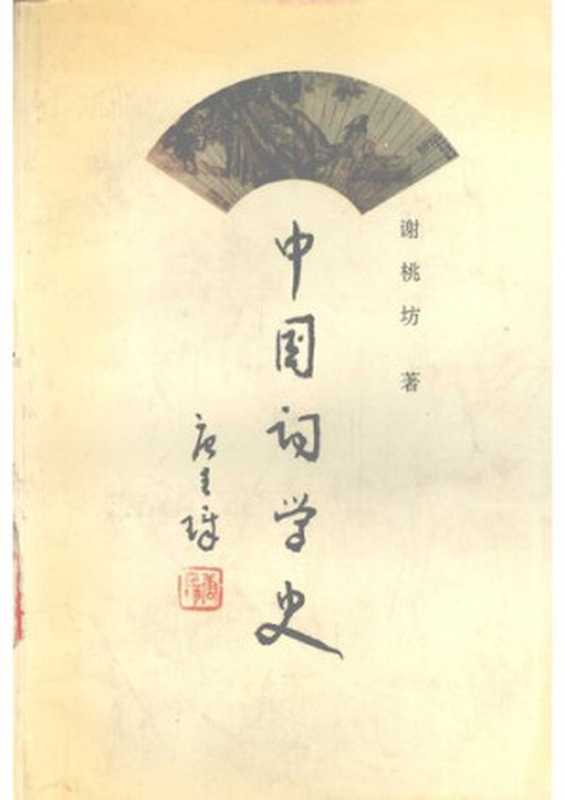 谢桃坊 著
中国词学史
唐圭璋